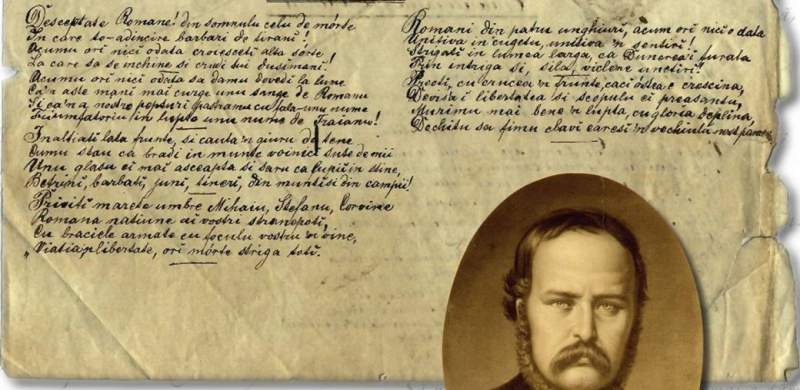 Desceptate Romane! din somnulu celu de mórte
In care te-adincire barbari de tirani!
Acumu ori nici odata croiesceti alta sórte
La care sa se inchine si crudi tui dusimani!
Acumu ori nici odata sa damu dovesi la lume
Ca'n aste mani mai curge unu sange de Romanu
Si ca'n a nostre pepturi pastramu cu fala-unu nume
Triumfatoriu in lupte unu nume de Traianu!
Inaltiati lata frunte, si cauta'n giuru de tene
Cumu stau ca bradi in munte voinici sute de mii
Unu glasu ei mai ascepta si saru ca lupii in stine,
Betrini, barbati, juni, tineri, din muntisi din campii!
Priviti marete umbre Mihaiu, Stefanu, Corvine
Romana natiune ai vostri stranepoti,
Cu braciele armate cu foculu vostru'n vine,
"Viatia'n libertate, ori mórte striga toti.
Romani din patru unghiuri, acum ori nici o data
Uniti-va in cugetu, uniti-va'n sentiri!
Strigati in lumea larga, ca Dunarea-i furata
Prin intriga si, sila, viclene unetiri!
Preoti, cu crucea'n frunte, caci óstea e crescina,
Devisa-i libertatea si scopulu ei preasantu,
Murimu mai bene'n lupta, cu gloria deplina,
Dechitu sa fimu clavi earesi'n vechiulu nost